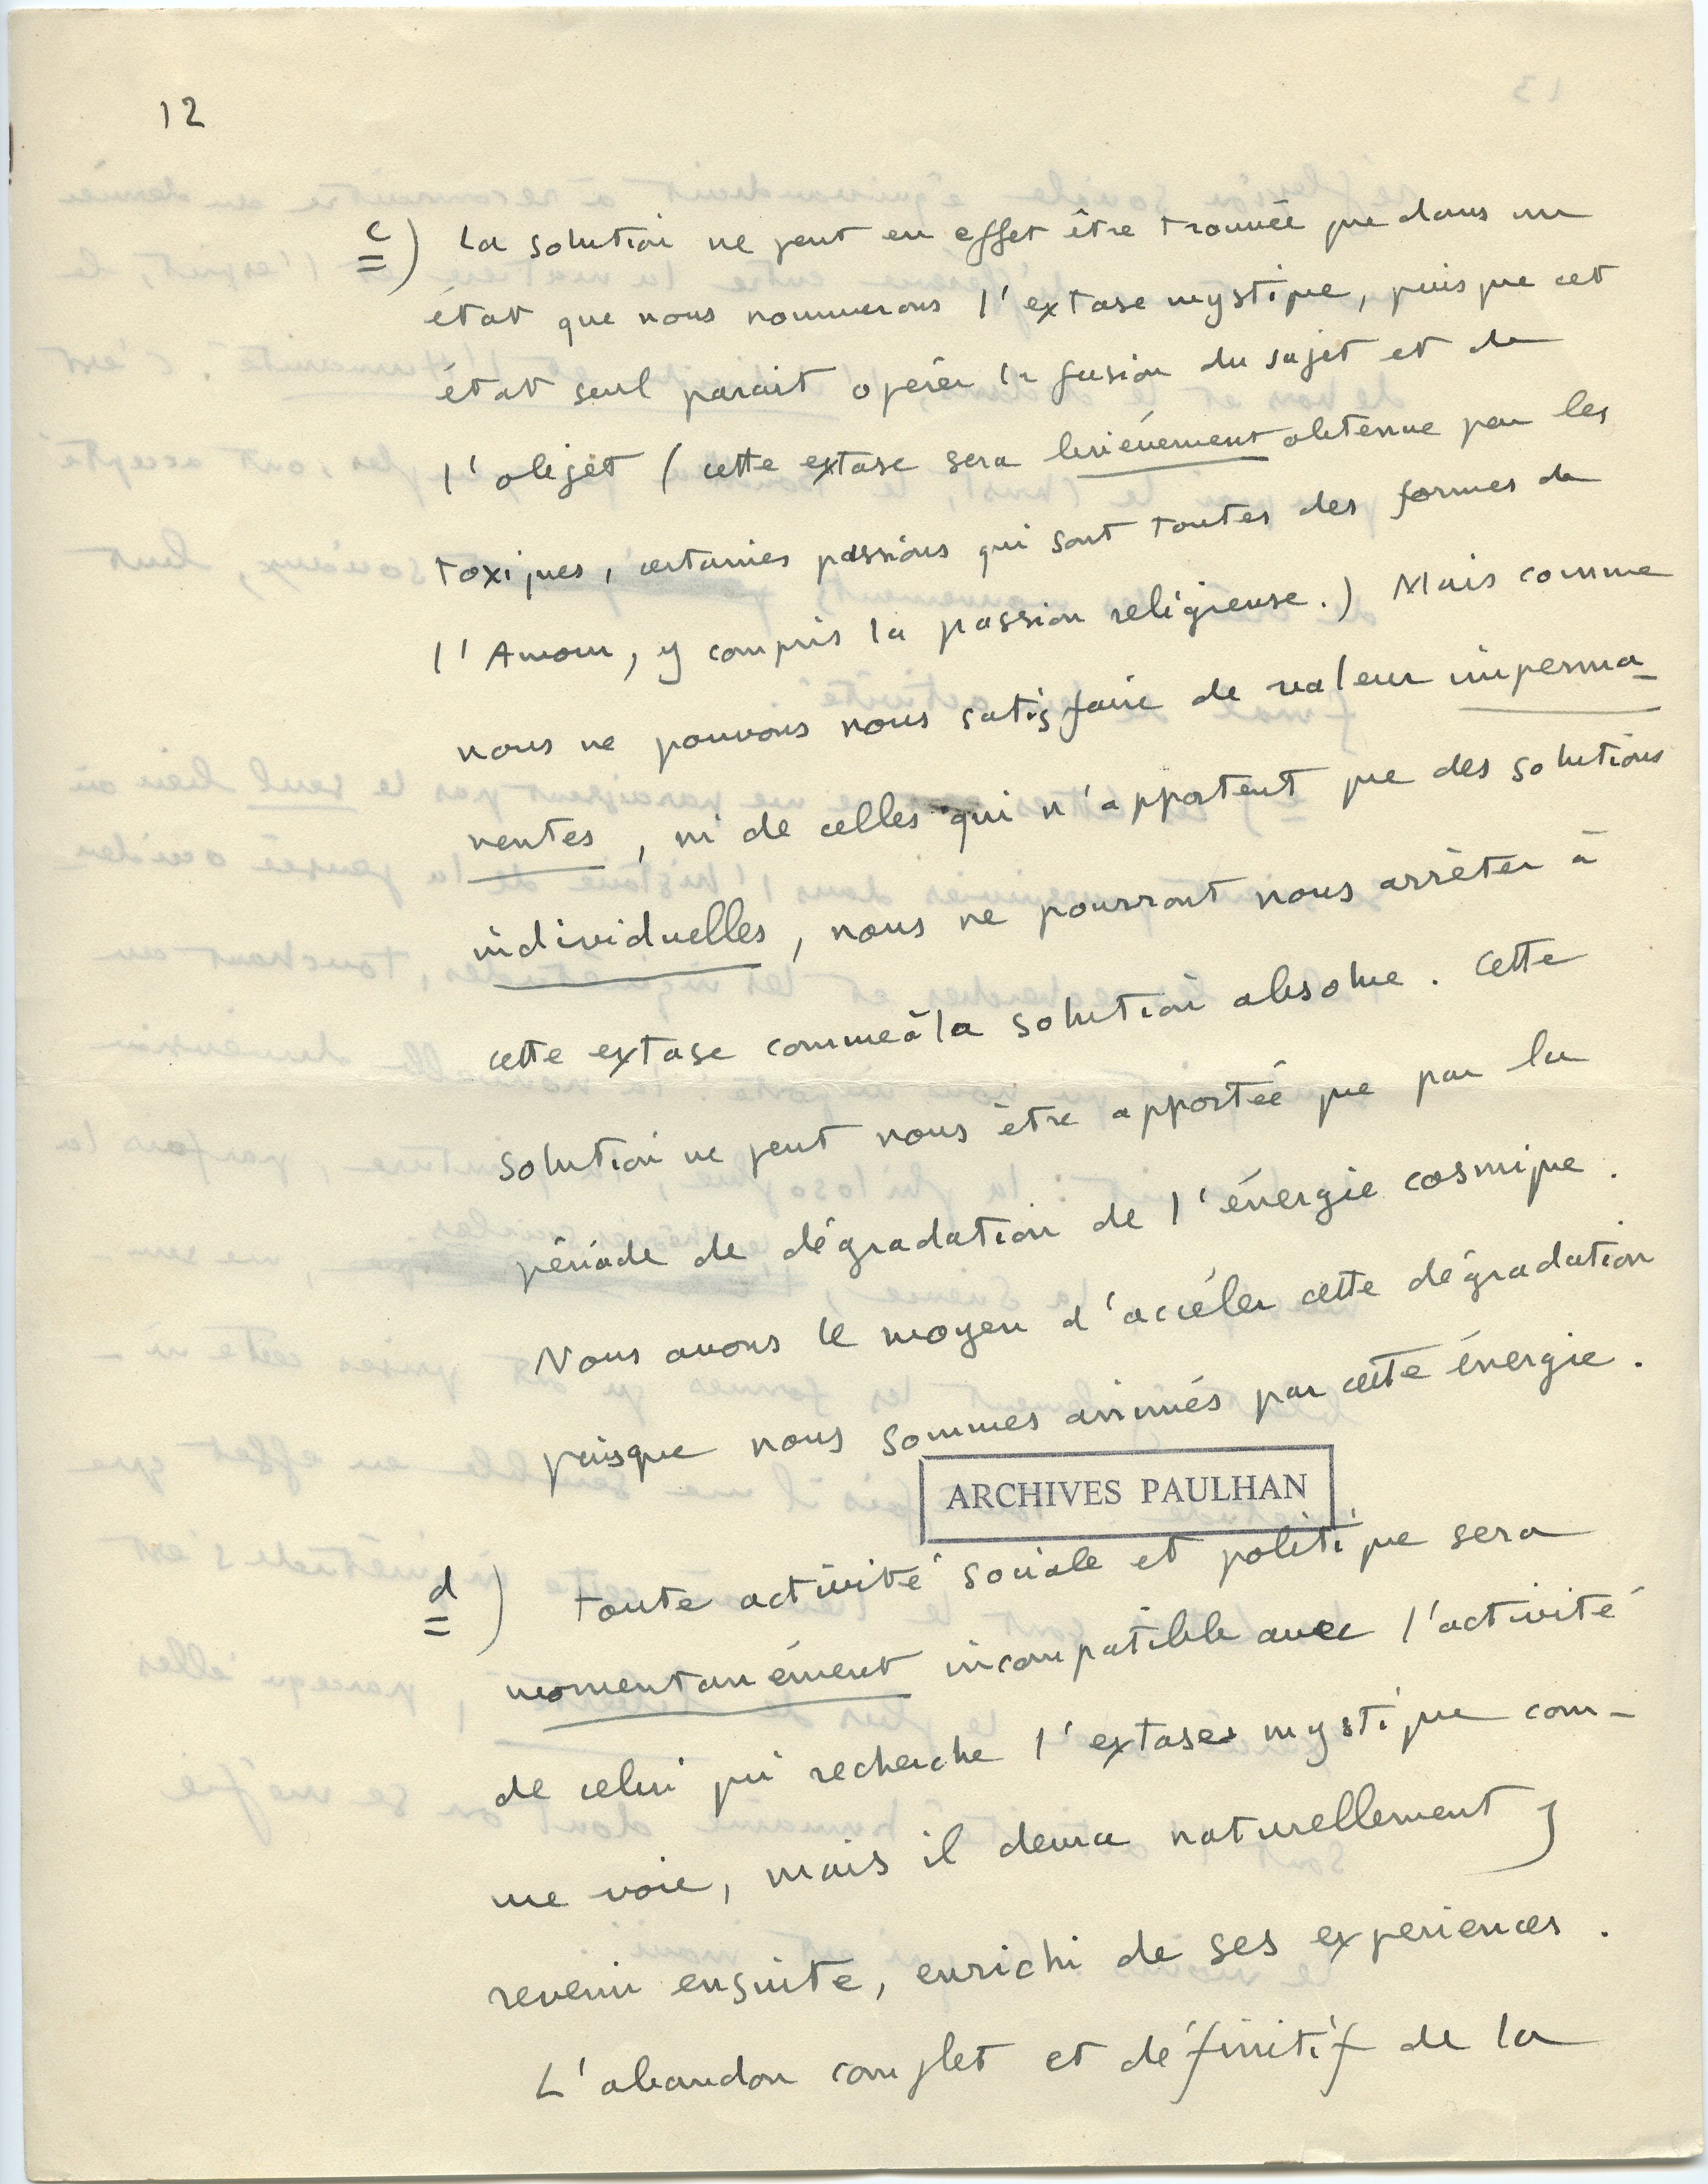 12
c) La solution ne peut en effet être trouvée que dans un
état que nous nommerons l'extase mystique, puisque cet
état seul parait opérer la fusion du sujet et de
l'objet (cette extase sera brièvement obtenue par les
toxiques, certaines passions qui sont toutes des formes de
l'Amour, y compris la passion religieuse.) Mais comme
nous ne pouvons nous satisfaire de valeur imperma-
nentes, ni de celles qui n'apportent que des solutions
individuelles, nous ne pourront nous arrêter à
cette extase comme à la solution absolue. Cette
solution ne peut nous être apportée que par la
période de dégradation de l'énergie cosmique.
Nous avons le moyen d'accéler cette dégradation
puisque nous sommes animés par cette énergie.
ARCHIVES PAULHAN
d) toute activité sociale et politique sera
momentanément incompatible avec l'activité
de celui qui recherche l'extase mystique com-
me voie, mais il devra naturellement y
revenir ensuite, enrichi de ses experiences.
L'abandon complet et définitif de la